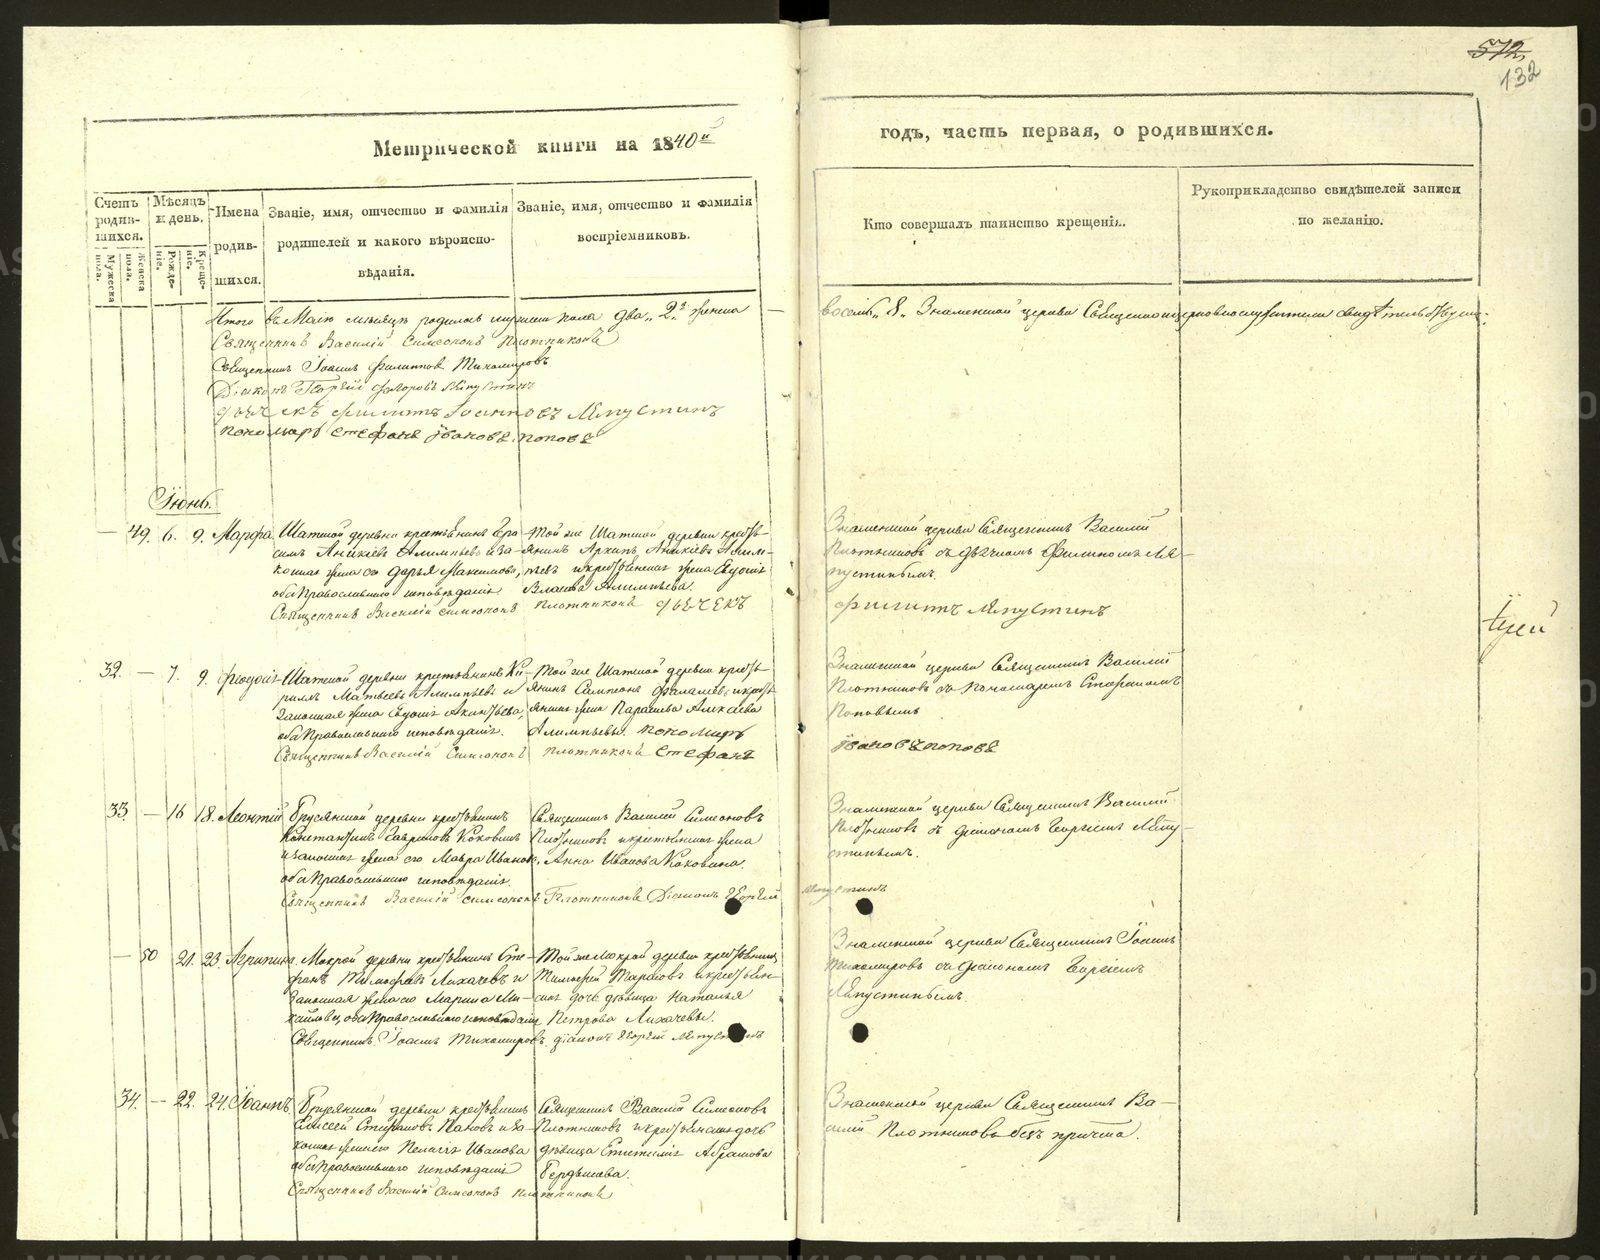 572
132
Метрической книги на 1840й
годъ, часть первая, о родившихся.
Счетъ родившихся.
Мужеска пола.
Женска пола.
Мѣсяцъ и день.
Рожденіе.
Крещеніе.
Имена родившихся.
Званіе, имя, отчество и фамилія
родителей и какого вѣроиспо-
вѣданія.
Званіе, имя, отчество и фамилія
воспріемниковъ.
Кто совершалъ таинство крещенія.
Рукоприкладство свидѣтелей записи
по желанію.
Итого въ Маіѣ мѣсяцѣ родилось мужеска пола два „2“ женска
восемь „8“ Знаменской церкви
Священникъ Василій Симеоновъ Плотниковъ
Священникъ Іоаннъ Филипповъ Тихомировъ
Діаконъ Георгій Ляпустинъ
Дьячекъ Филиппъ Іоанновъ Ляпустинъ
Пономарь Стефанъ Ивановъ Поповъ
Іюнь.
49. 6. 9. Марфа
Шатской деревни крестьянинъ Гра-
симъ Аникіевъ Алимпіевъ и за-
конная жена его Дарья Максимова,
оба Православнаго исповѣданія
Священникъ Василій Симеоновъ Плотниковъ Дьячекъ
Той же Шатской деревни кресть-
янинъ Архипъ Аникіевъ Алим-
піевъ и крестьянская жена Евдокія
Власова Алимпіева.
Знаменской церкви Священникъ Василій
Плотниковъ съ дьячкомъ Филиппомъ Ля-
пустинымъ.
Филиппъ Ляпустинъ
32. — 7. 9. Феодоръ
Шатской деревни крестьянинъ Ки-
риллъ Матвѣевъ Алимпіевъ и
законная жена Евдокія Акинѳьева,
оба Православнаго исповѣданія.
Священникъ Василій Симеоновъ Плотниковъ Стефанъ
Той же Шатской деревни кресть-
янинъ Сампсонъ и кресть-
янская жена Параскева
Алимпіевы. Пономарь
Знаменской церкви Священникъ Василій
Плотниковъ съ пономаремъ Стефаномъ
Поповымъ
Ивановъ Поповъ
33. — 16 18. Леонтій
Брусянской деревни крестьянинъ
Константинъ Гавриловъ Коковинъ
и законная жена его Мавра Иванова,
оба Православнаго исповѣданія.
Священникъ Василій Симеоновъ Плотниковъ Діаконъ Георгій
Священникъ Василій Симеоновъ
Плотниковъ и крестьянская жена
Анна Иванова Коковина.
Знаменской церкви Священникъ Василій
Плотниковъ съ діакономъ Георгіемъ Ляпу-
стинымъ.
Ляпустинъ
— 50 21. 23. Агрипина.
Мокрой деревни крестьянинъ Сте-
фанъ Тимофеевъ Лихачевъ и
законная жена его Марина Ми-
хайлова, оба Православнаго исповѣданія
Священникъ Іоаннъ Тихомировъ. Діаконъ Георгій Ляпустинъ
Той же Мокрой деревни крестьянинъ
Тимофей Тарасовъ и крестьян-
ская дочь дѣвица Наталья
Петрова Лихачевы.
Знаменской церкви Священникъ Іоаннъ
Тихомировъ съ діакономъ Георгіемъ
Ляпустинымъ.
34. — 22. 24. Іоаннъ
Брусянской деревни крестьянинъ
Елисей Стефановъ Пановъ и за-
конная жена его Пелагія Иванова
оба Православнаго исповѣданія
Священникъ Василій Симеоновъ Плотниковъ
Священникъ Василій Симеоновъ
Плотниковъ и крестьянская дочь
дѣвица Абрамова
Бердышева.
Знаменской церкви Священникъ Ва-
силій Плотниковъ безъ причта.